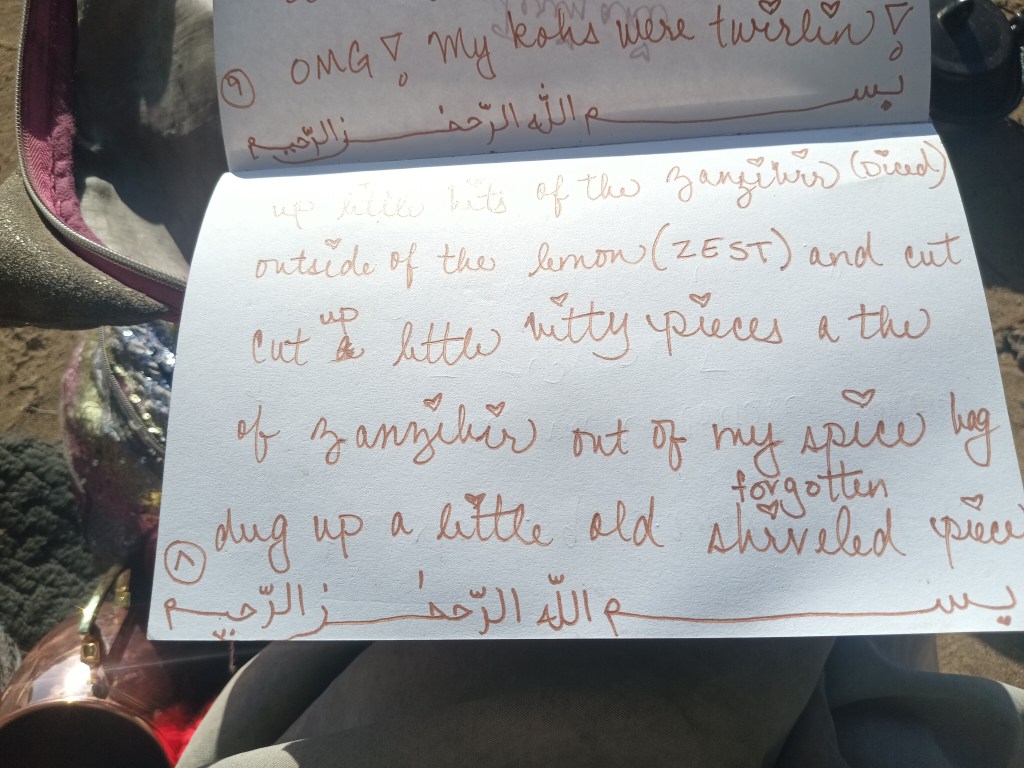 OMG! My kohs were twirlin!
٩
بسم الله الرّحمٰن الرّحيم
up little bits of the zanzibir (Diced)
outside of the lemon (ZEST) and cut
cut up little bitty pieces a the
of zanzibir out of my spice bag
forgotten
dug up a little old shriveled piece
٨
بسم الله الرّحمٰن الرّحيم